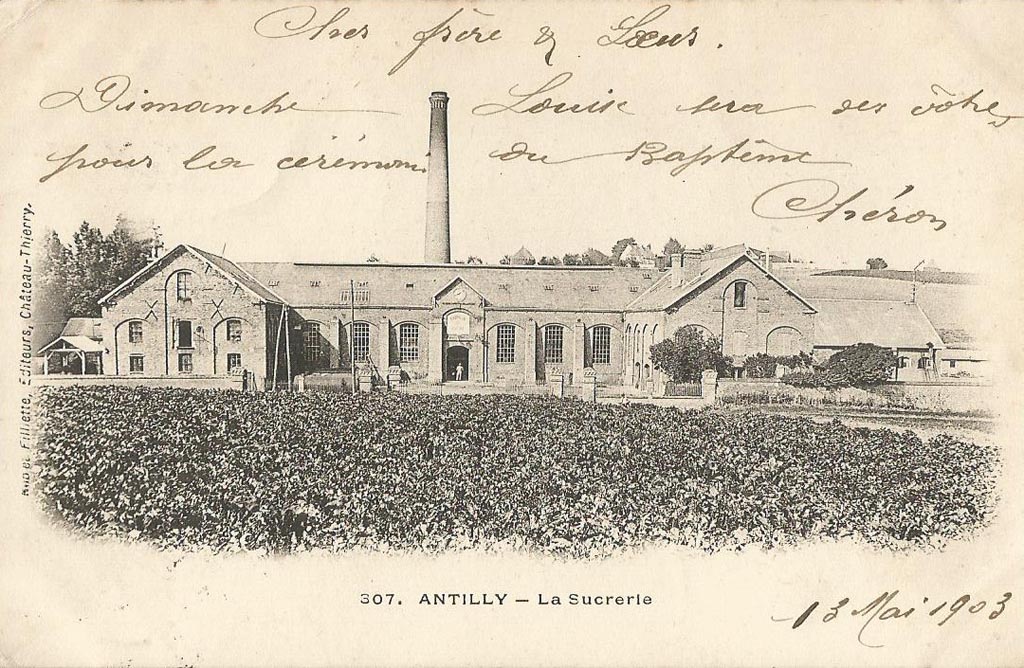 Cher frère & Sœur.
Dimanche Louise sera des vôtres
pour la cérémoni du Baptême
Chéron
Filliette, Éditeurs, Château-Thierry.
307. ANTILLY — La Sucrerie
13 Mai 1903